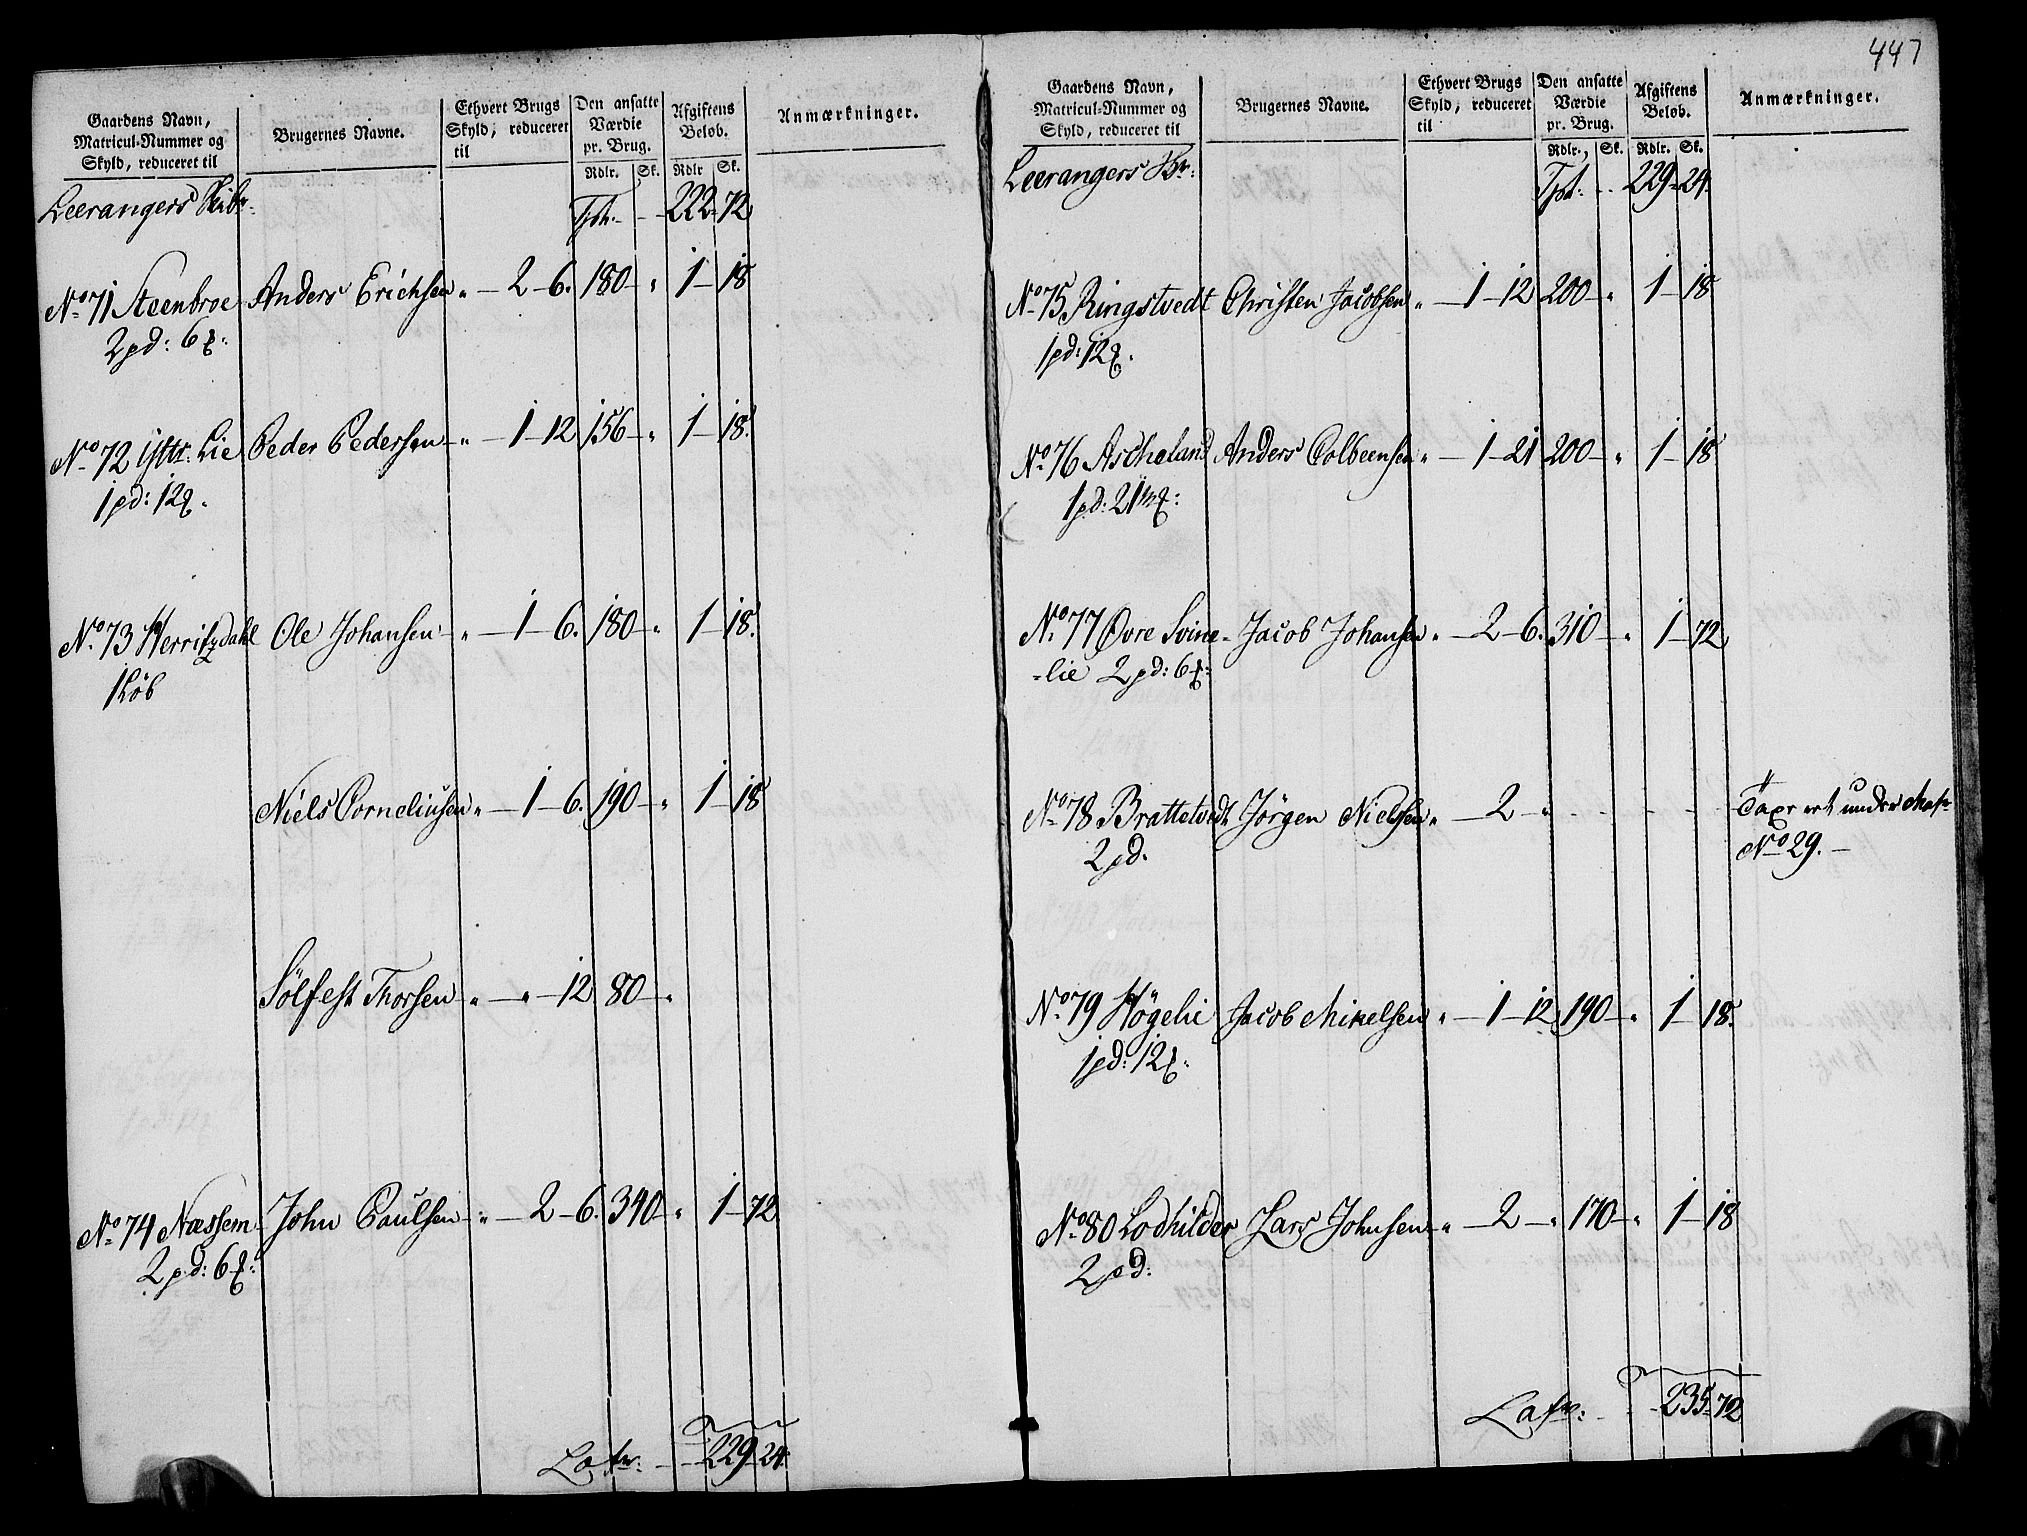 Gaardens Navn,
Matricul-Nummer og
Skyld, reduceret til
Brugernes Navne.
Ethvert Brugs
Skyld, reduceret
til
Den ansatte
Værdie
pr. Brug.
Rdlr. Sk.
Afgiftens
Beløb.
Rdlr Sk.
Anmærkninger.
Leerangers Skibr. Tpt. - - 222 - 72
No 71 Steenbroe Anders Erichsen " - 2 - 6. 180 - " 1 - 18
2 pd: 6 ℔.
No 72 Yttr. Lie Peder Pedersen - " - 1 - 12 156 - " 1 - 18.
1 pd: 12 ℔.
No 73 Herritzdahl Ole Johansen - " - 1 - 6. 180 - " 1 - 18.
1 Løb
Niels Corneliusen " - 1 - 6. 190 - " 1 - 18
Sölfest Thorsen - " - " - 12 80 - "
No 74 Næssem John Paulsen - " - 2 - 6. 340 - " 1 - 72
2 pd: 6 ℔.
Lats: - - 229 - 24.
447
Gaardens Navn,
Matricul-Nummer og
Skyld, reduceret til
Brugernes Navne.
Ethvert Brugs
Skyld, reduceret
til
Den ansatte
Værdie
pr. Brug.
Rdlr. Sk.
Afgiftens
Beløb.
Rdlr. Sk.
Anmærkninger.
Leerangers Sbr: Tpt. - - 229 - 24.
No 75 Ringstvedt Christen Jacobsen " - 1 - 12 200 - " 1 - 18
1 pd: 12 ℔.
No 76 Ascheland Anders Colbeensen " - 1 - 21 200 - " 1 - 18
1 pd: 21 m℔:
No 77 Øvre Svine- Jacob Johansen " - 2 - 6. 310 - " 1 - 72
-lie 2 pd: 6 ℔:
No 78 Brattetvedt Jørgen Nielsen " - 2 - " - - - - Taxeret under Mat:
2 pd. No 29. -
No 79 Høgelie Jacob Mikelsen " - 1 - 12 190 - " 1 - 18.
1 pd: 12 ℔.
No 80 Lodhilder Lars Johnsen - " - 2 - " 170 - " 1 - 18
2 pd:
Lats: - - 235 - 72